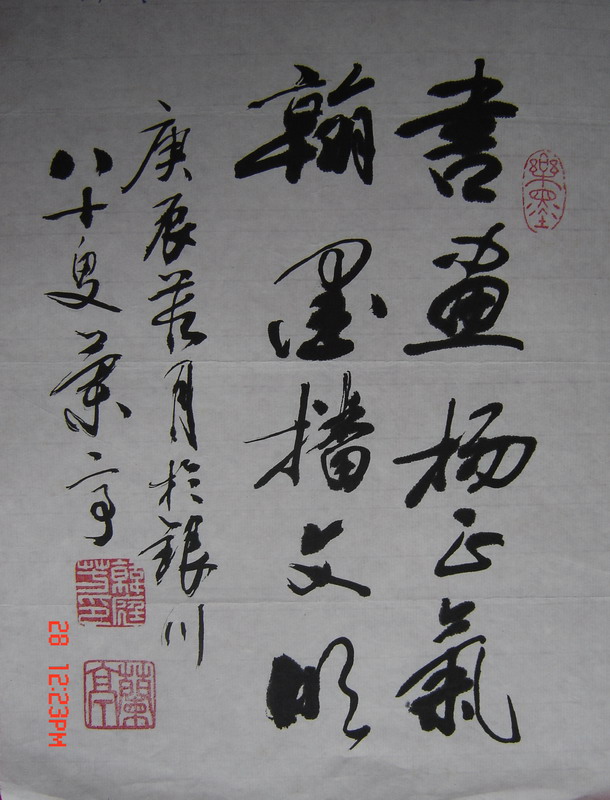 書畫揚正氣
翰墨播文明
庚辰月於銀川
八十叟蘭亭
樂墨
蘭亭
28 12:23PM